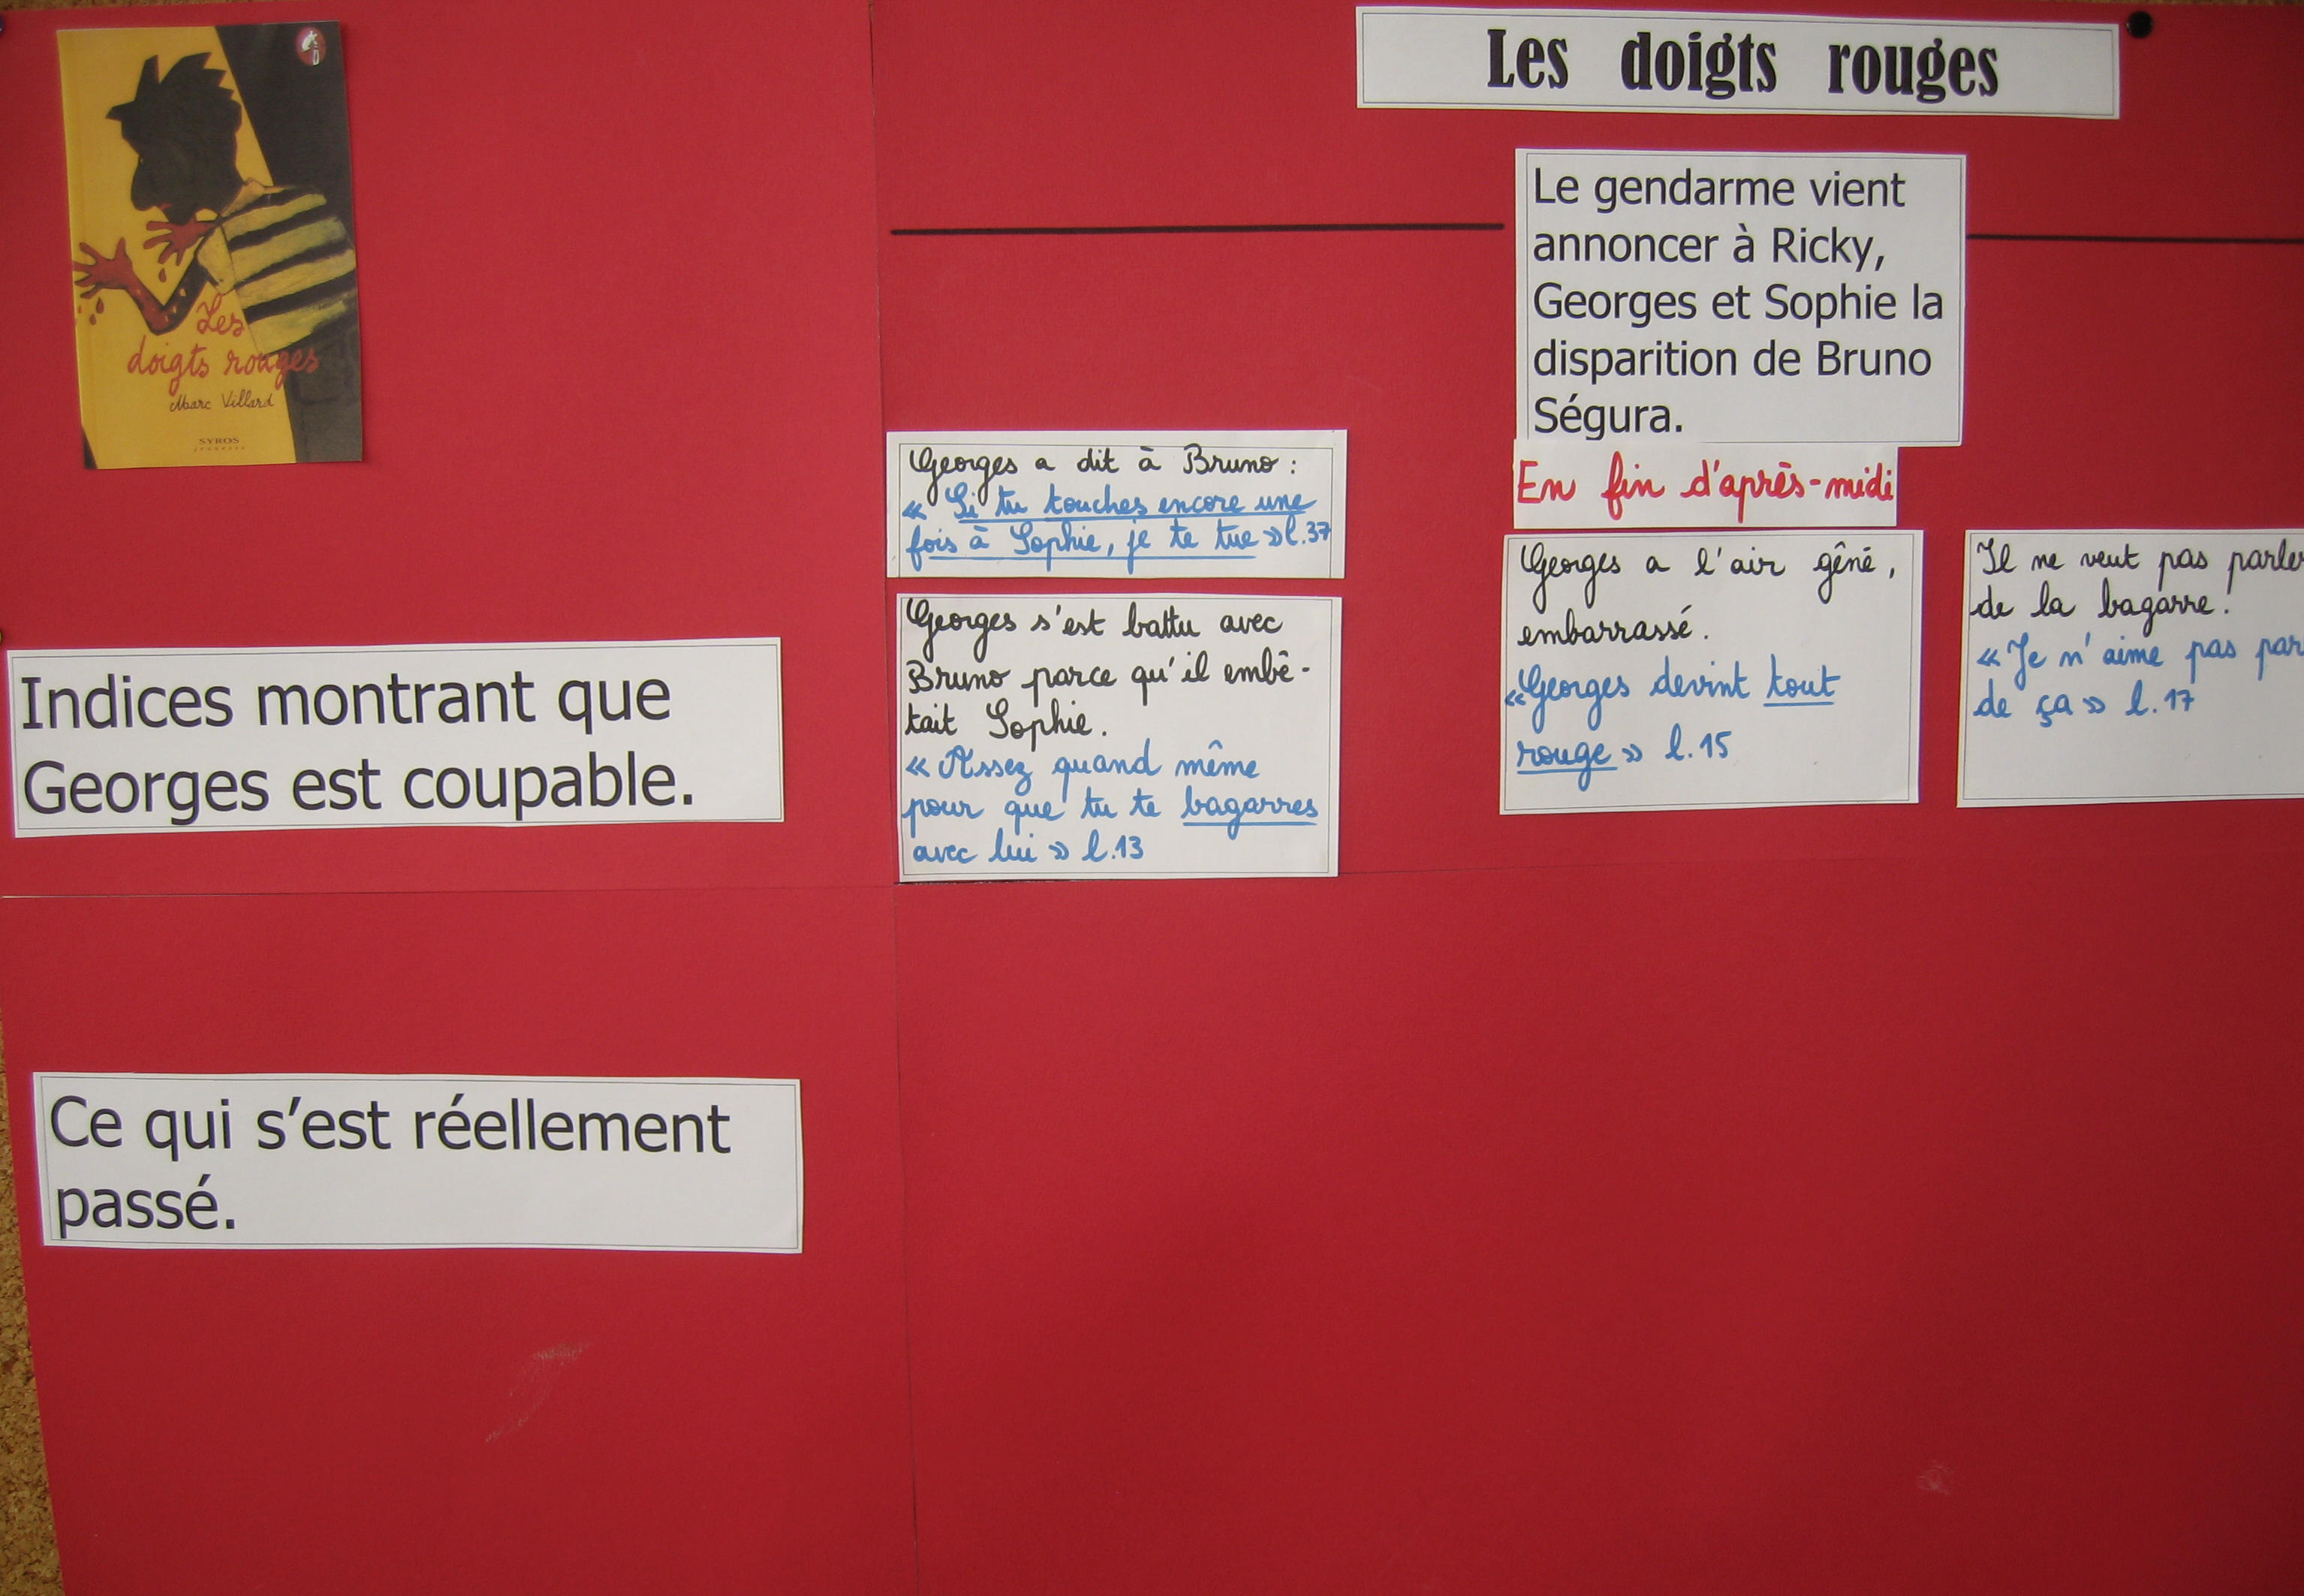 Les
doigts rouges
Marc Villard
SYROS
jeunesse
Les doigts rouges
Le gendarme vient
annoncer à Ricky,
Georges et Sophie la
disparition de Bruno
Ségura.
En fin d'après-midi
Indices montrant que
Georges est coupable.
Georges a dit à Bruno :
« Si tu touches encore une
fois à Sophie, je te tue » l.37
Georges s'est battu avec
Bruno parce qu'il embê-
tait Sophie.
« Assez quand même
pour que tu te bagarres
avec lui » l.13
Georges a l'air gêné,
embarrassé.
« Georges devint tout
rouge » l.15
Il ne veut pas parler
de la bagarre.
« Je n'aime pas par
de ça » l.17
Ce qui s'est réellement
passé.